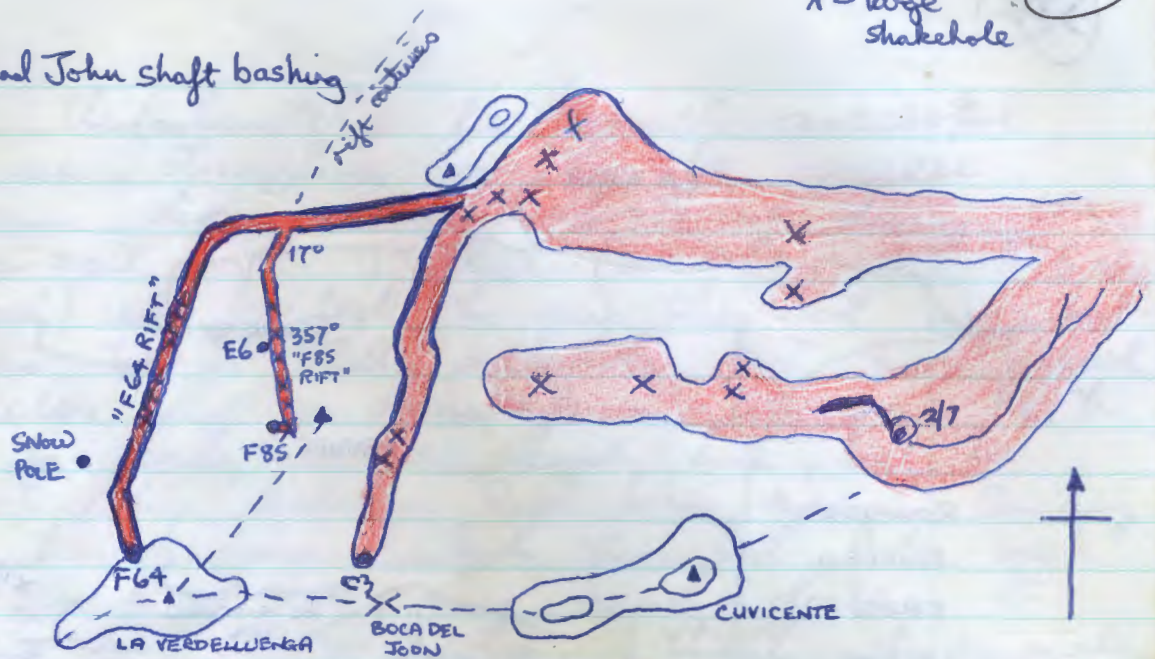 x = large
shakehole
and John shaft bashing
rift continues
17°
"F64 RIFT"
E6
357°
"F85
RIFT"
F85
2/7
SNOW
POLE
F64
C3
LA VERDELLUENGA
BOCA DEL
JOON
CUVICENTE